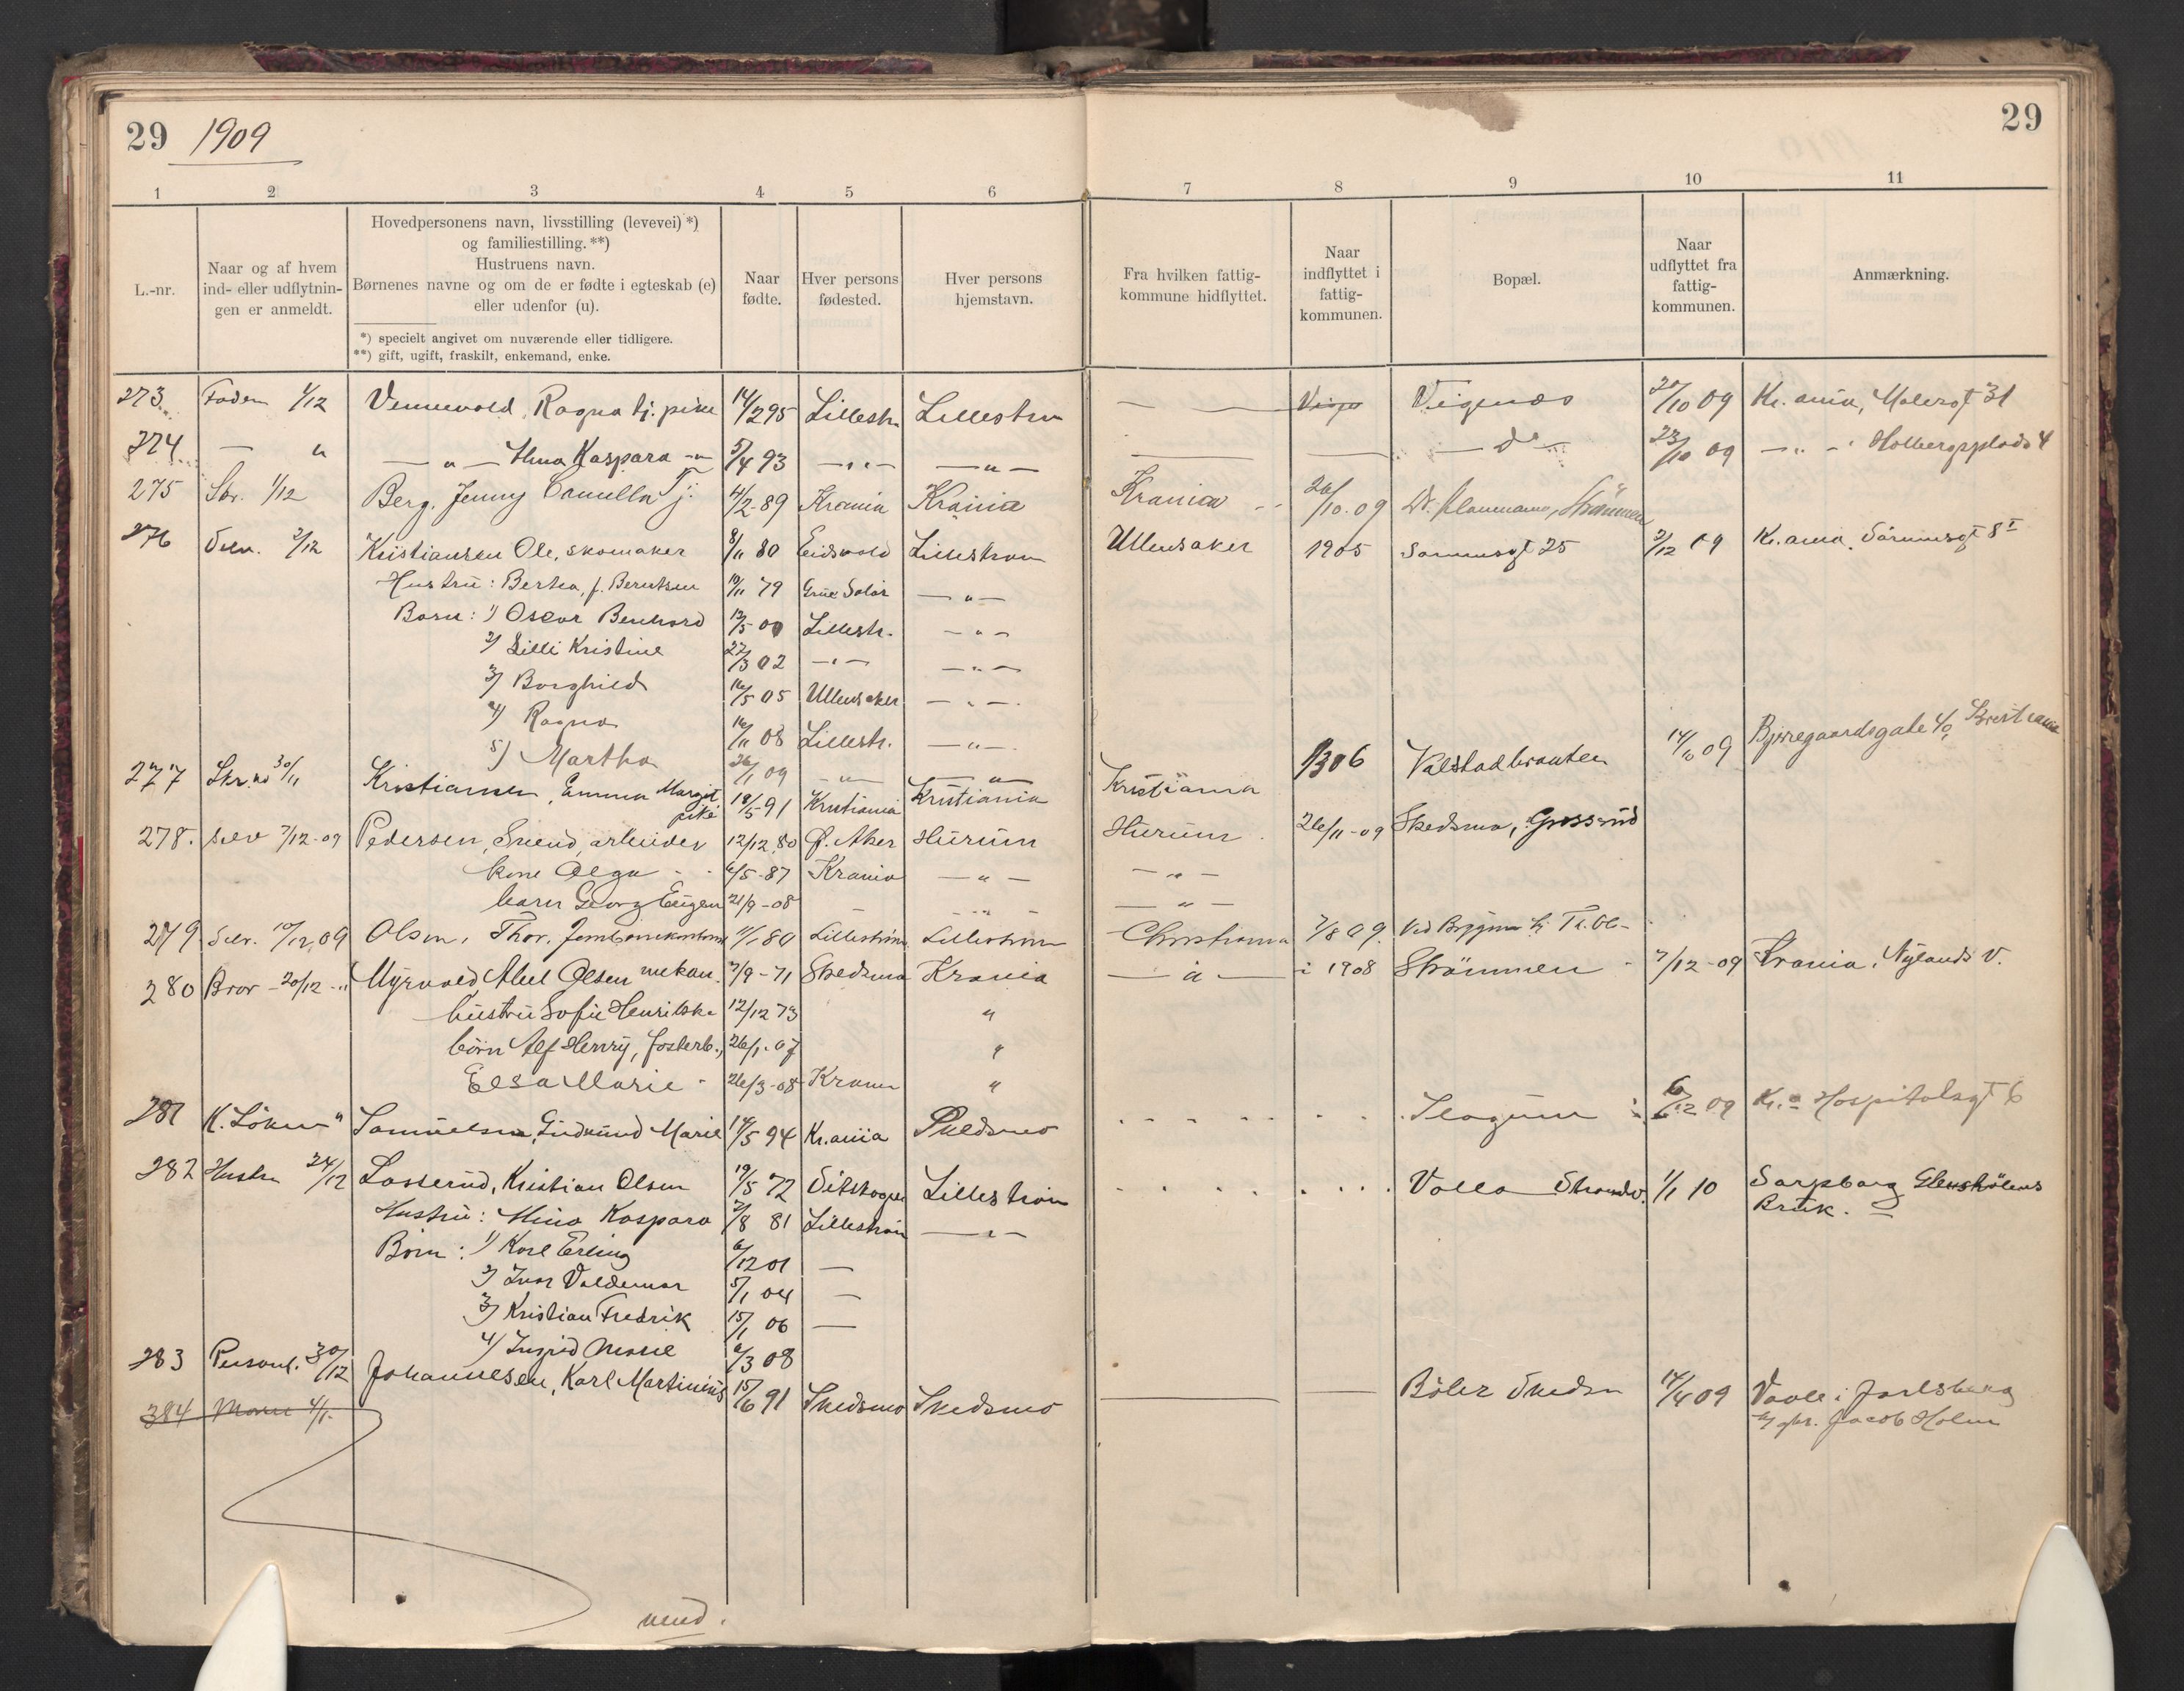 29 1909
29
1 2 3 4 5 6 7 8 9 10 11
L.-nr.
Naar og af hvem
ind- eller udflytnin-
gen er anmeldt.
Hovedpersonens navn, livsstilling (levevei) *)
og familiestilling. **)
Hustruens navn.
Børnenes navne og om de er fødte i egteskab (e)
eller udenfor (u).
*) specielt angivet om nuværende eller tidligere.
**) gift, ugift, fraskilt, enkemand, enke.
Naar
fødte.
Hver persons
fødested.
Hver persons
hjemstavn.
Fra hvilken fattig-
kommune hidflyttet.
Naar
indflyttet i
fattig-
kommunen.
Bopæl.
Naar
udflyttet fra
fattig-
kommunen.
Anmærkning.
273 Faden 1/12 Vennevold, Ragna tj. pike 14/2 95 Lillestr. Lillestrøm — — Vigernes 20/10 09 Kr.ania, 31
274 — " — " — Kaspara — " 5/4 93 — " — — " — — — — d° — 23/10 09 — " — Holbergsplads 4
275 Skr. 1/12 Berg, Jenny Camilla Tj. 4/2-89 Krania Krania Krania 26/10-09 Strømmen
276 Selv. 2/12 Kristiansen Ole, skomaker 8/11 80 Eidsvold Lillestrøm Ullensaker 1905 25 2/12 09 Kr.ania. 8 I
Hustru: Berthea, f. Berntsen 10/11 79 Grue Solør — " —
Børn: 1) Oscar Bernhard 12/5 00 Lillestr. — " —
2) Lilli Kristine 22/3 02 — " — — " —
3) Borghild 16/5 05 Ullensaker — " —
4) Ragna 16/11 08 Lillestr. — " —
5) Martha 26/1 09 — " — — " —
277 30/11 Kristiansen, Emma Margit, pike 18/5-91 Kristiania Kristiania Kristiania 1/3 06 Valstadbraaten 14/11 09 Bjerregaardsgate Kristiania
278. Selv 7/12-09 Pedersen, Svend, arbeider 12/12 80 Ø. Aker Hurum Hurum 26/11-09 Skedsmo,
kone Olga 6/5-87 Krania — " — — " —
barn Georg Eugen 21/9-08 — " — — " —
279 Selv. 10/12 09 Olsen, Thor, 11/1 80 Lillestrøm Lillestrøm Christiania 7/8 09.
280 Bror - 20/12 - " Myrvold Abel Olsen mekan. 7/9-71 Skedsmo Krania — " — i 1908 Strømmen 7/12-09 Krania, Nylands V.
hustru Sofie 12/12 73 "
børn Alf Henry, fosterb., 26/1-07 "
Elsa Marie 26/3-08 Krania "
281 K. Løken " Samuelsen, Gudrund Marie 14/5 94 Kr.ania Skedsmo 6/12 09 Kr.a Hospitalsgt 6
282 Hustru 24/12 Losserud, Kristian Olsen 19/5 72 Setskogen Lillestrøm Volla 1/1 10 Sarpsborg
Bruk.
Hustru: Mina Kaspara 2/8 81 Lillestrøm — " —
Børn: 1) Karl Erling 6/12 01 —
2) Ivar Valdemar 5/1 04 —
3) Kristian Fredrik 15/1 06 —
4) Ingrid Marie 6/3 08
283 Personl. 30/12 Johannesen, Karl Martinius 15/6 91 Skedsmo Skedsmo — — Bøler 14/4 09 Vaale i Jarlsberg
Jacob Holm
384 4/1.